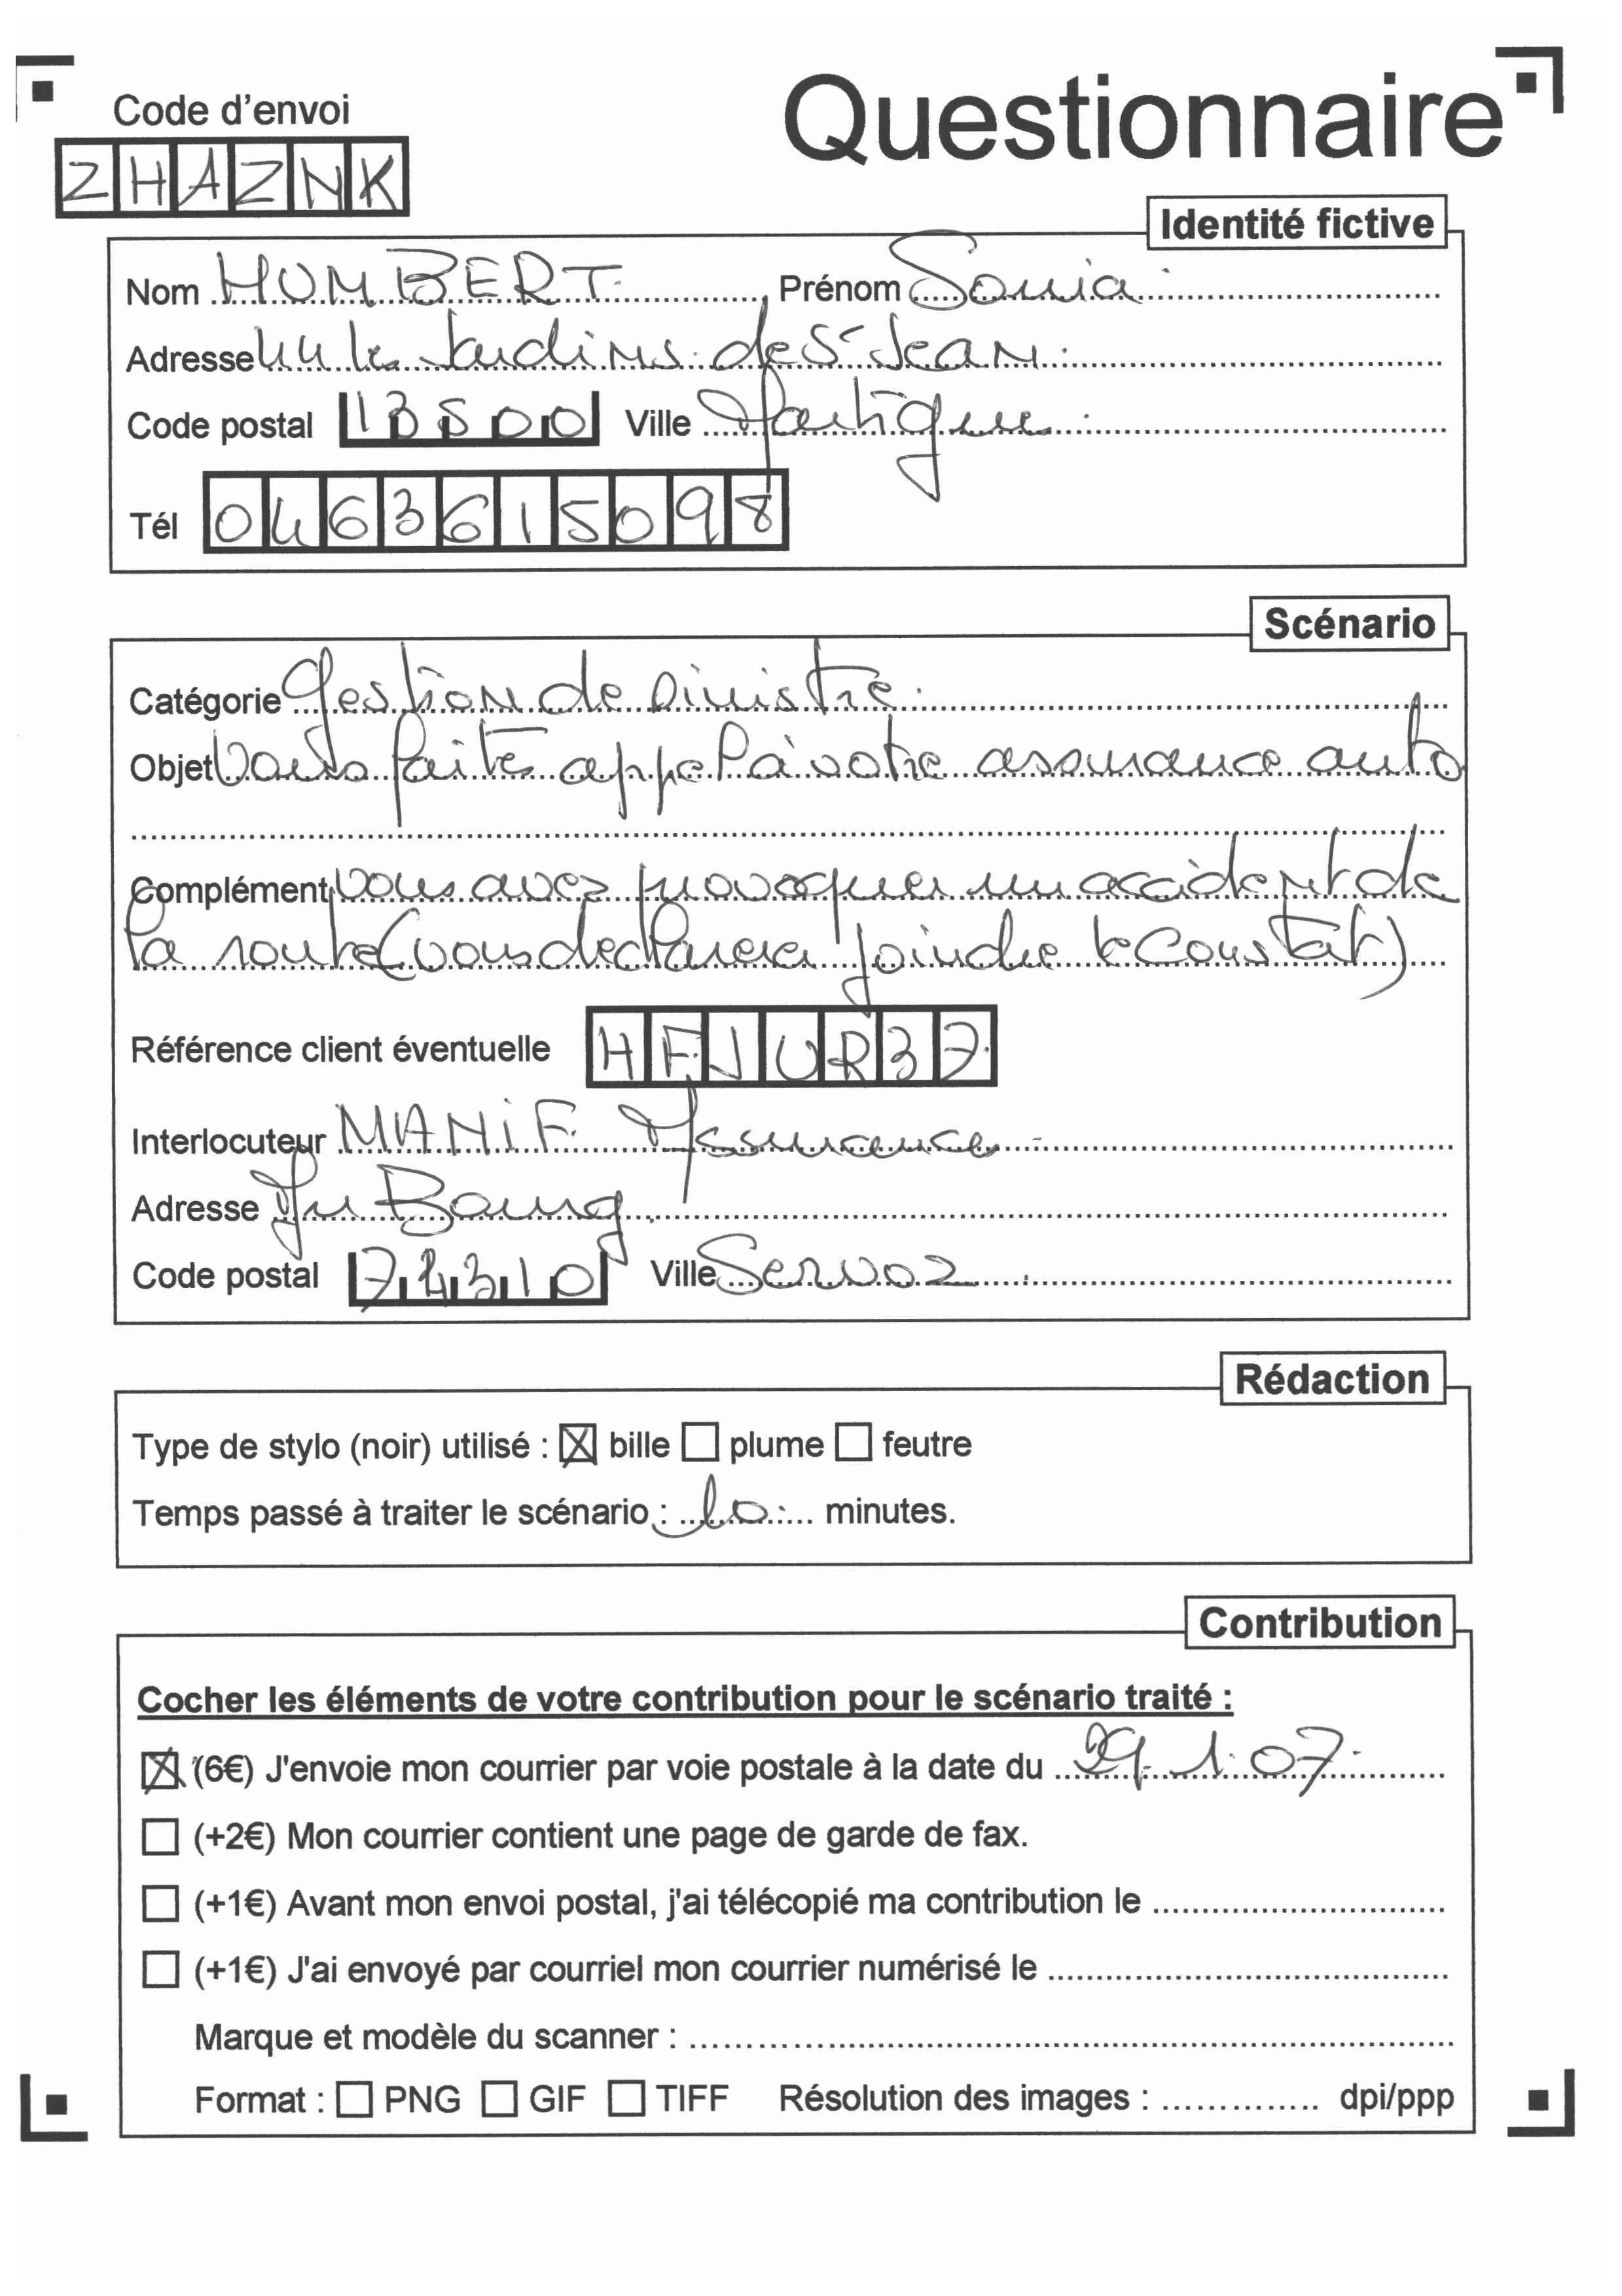 Questionnaire
Code d'envoi
ZHAZNK
Identité fictive
Nom HUMBERT Prénom Sonia
Adresse 44 les Jardins de St Jean
Code postal 13500 Ville Martigue
Tél 0463615098
Scénario
Catégorie gestion de sinistre
Objet Vous faites appel à votre assurance auto
Complément Vous avez provoquer un accident de
la route (vous declarerer joindre le constat)
Référence client éventuelle HFJUR37
Interlocuteur MANIF Assurance
Adresse Bourg
Code postal 74310 Ville Servoz
Rédaction
Type de stylo (noir) utilisé : ☒ bille ☐ plume ☐ feutre
Temps passé à traiter le scénario : 10 minutes.
Contribution
Cocher les éléments de votre contribution pour le scénario traité :
☒ (6€) J'envoie mon courrier par voie postale à la date du 29.1.07
☐ (+2€) Mon courrier contient une page de garde de fax.
☐ (+1€) Avant mon envoi postal, j'ai télécopié ma contribution le
☐ (+1€) J'ai envoyé par courriel mon courrier numérisé le
Marque et modèle du scanner :
Format : ☐ PNG ☐ GIF ☐ TIFF Résolution des images : dpi/ppp